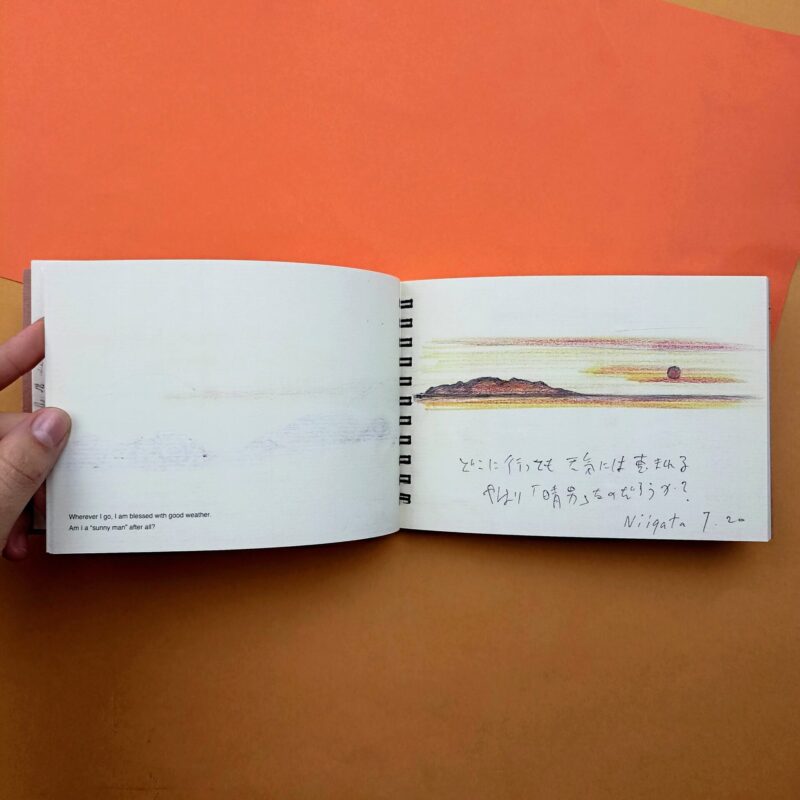 Wherever I go, I am blessed with good weather.
Am I a "sunny man" after all?
どこに行っても 天気には恵まれる
やはり「晴男」なのだろうか?
Niigata 7.20